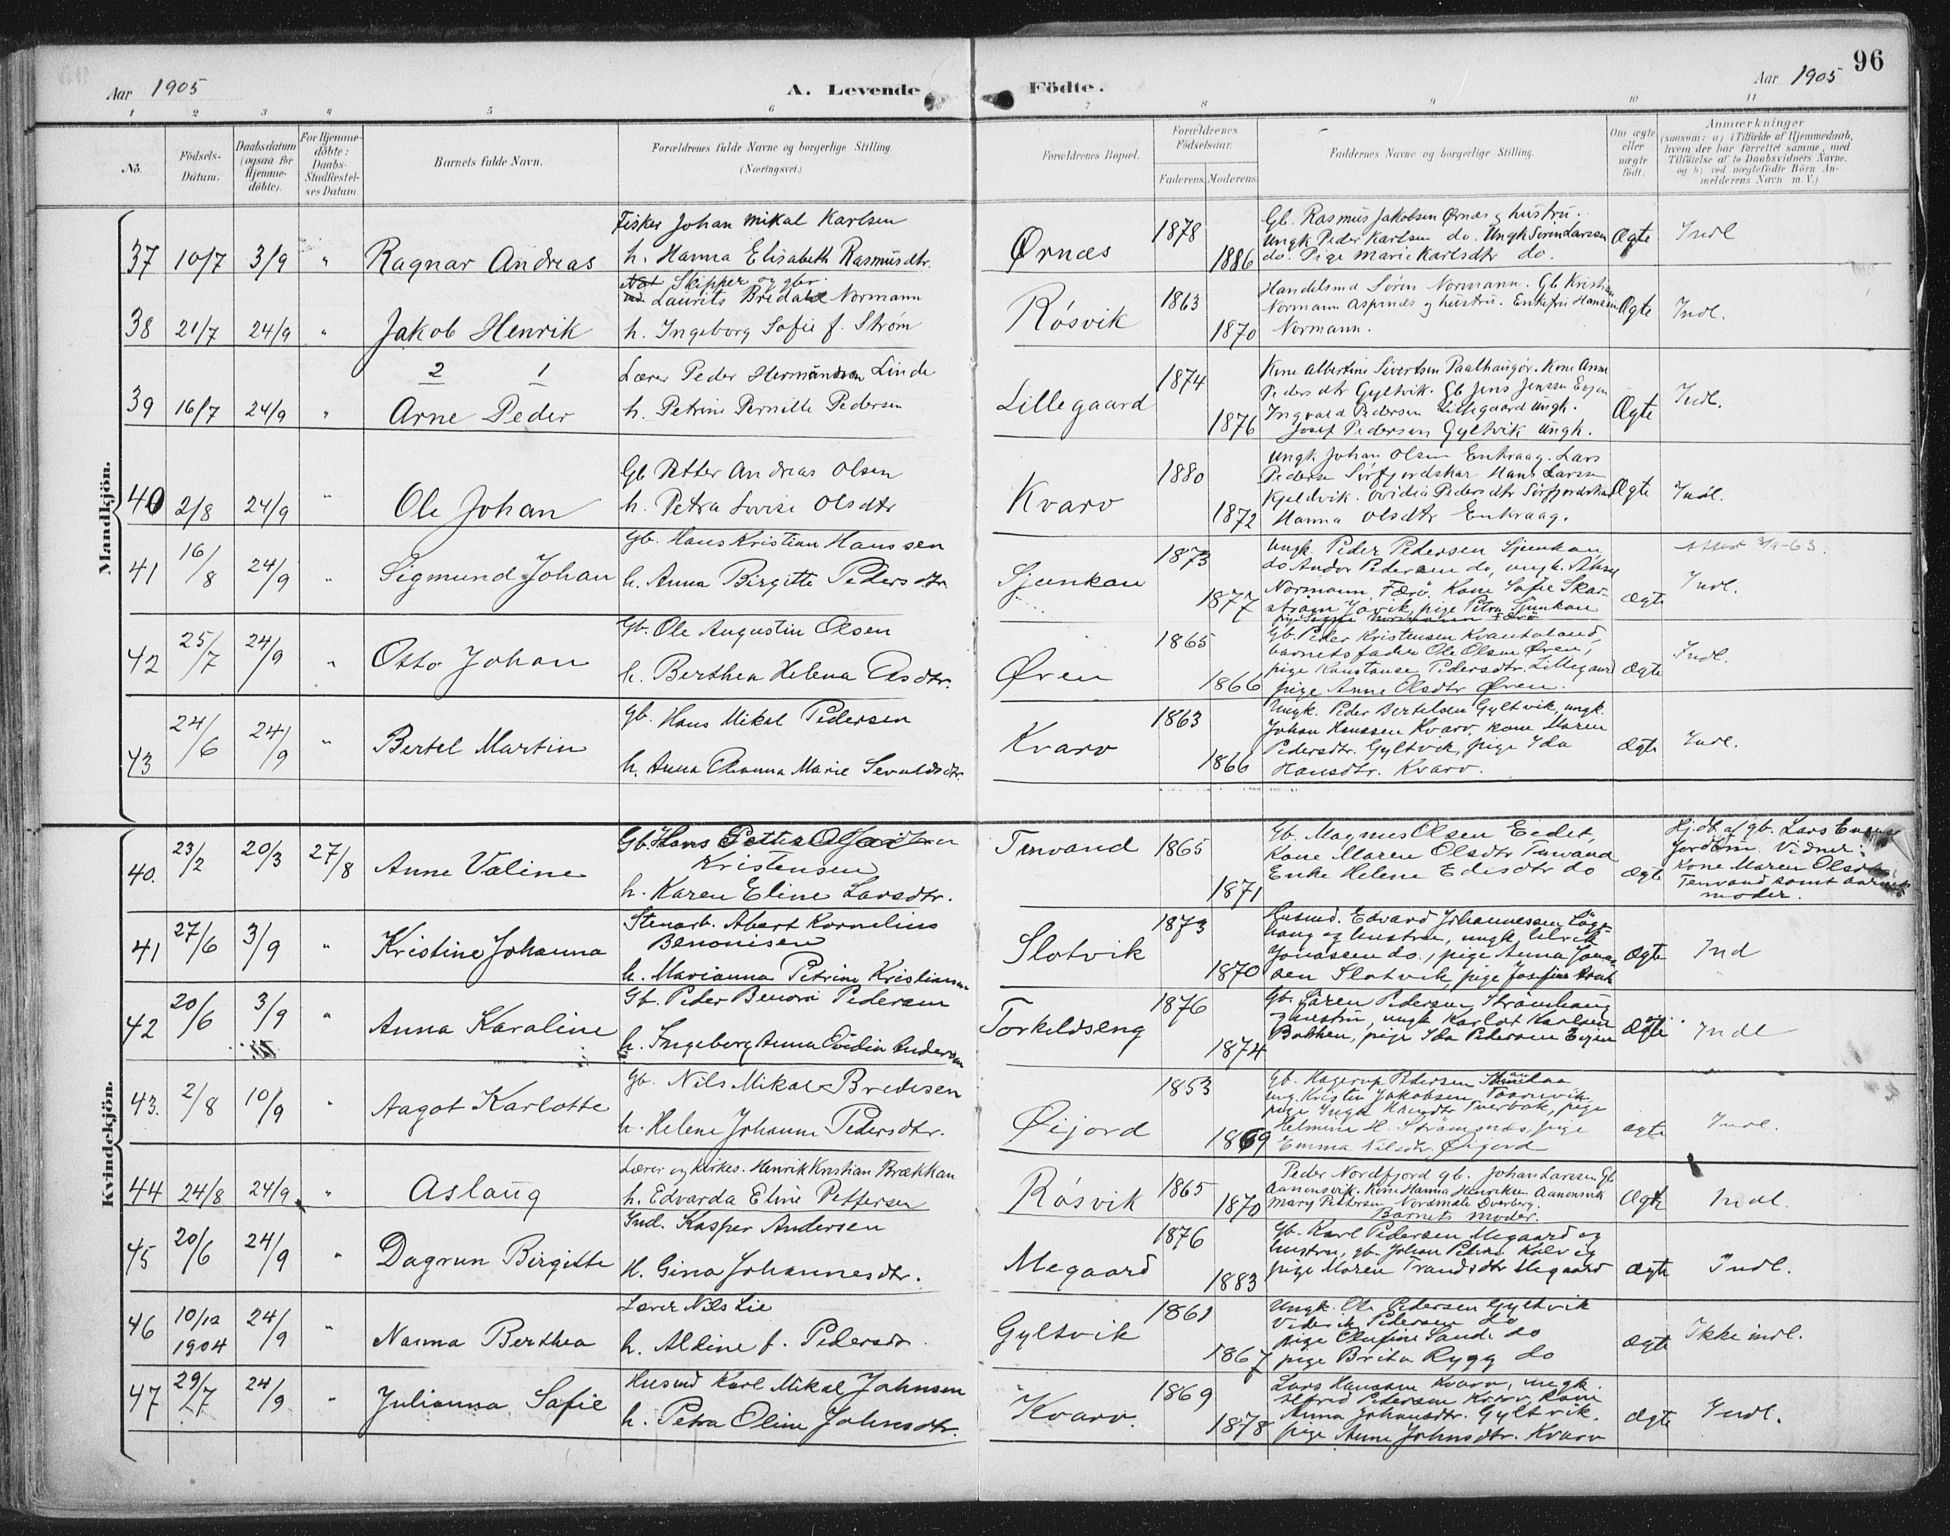 96
Aar 1905
A. Levende
Födte.
Aar 1905
1 2 3 4 5 6 7 8 9 10 11
No.
Födsels-
Datum.
Daabsdatum
(ogsaa for
Hjemme-
döbte).
For Hjemme-
döbte:
Daabs-
Stadfæstel-
ses Datum
Barnets fulde Navn.
Forældrenes fulde Navne og borgerlige Stilling.
(Næringsvei.)
Forældrenes Bopæl.
Forældrenes
Födselsaar.
Faderens. Moderens.
Faddernes Navne og borgerlige Stilling.
Om ægte
eller
uægte
födt.
Anmærkninger
(saasom: a) i Tilfælde af Hjemmedaab,
hvem der har forrettet samme, med
Tilföielse af to Daabsvidners Navne,
og b) ved uægtefödte Börn An-
melderens Navn m. V.)
Mandkjön.
37 10/7 3/9 " Ragnar Andreas
Fisker Johan Mikal Karlsen
h. Hanna Elisabeth Rasmusdtr.
Ørnæs 1878 1886
Gb. Rasmus Jakobsen Ørnæs og hustru.
Ungk Peder Karlsen do. Ungk Sørin Larsen
do. Pige Marie Karlsdtr do.
Ægte Indl
38 21/7 24/9 " Jakob Henrik
2 1
Skipper og gbr.
Laurits Bredahl Normann
h. Ingeborg Sofie f. Strøm
Røsvik 1863 1870
Handelsmd Sörin Normann. Gb Kristian
Normann Aspenæs og hustru. Enkefru Hansine
Normann.
Ægte Indl.
39 16/7 24/9 " Arne Peder
Lærer Peder Hermansen Linde
h. Petrine Pernille Pedersen
Lillegaard 1874 1876
Kone Albertine Sivertsen Paalhaugør. Kone Anne
Pedersdtr Gyltvik. Gb Jens Jenssen Evjen
Ingvald Pedersen Lillegaard ungk.
Josef Pedersen Gyltvik ungk.
Ægte Indl.
40 2/8 24/9 " Ole Johan
Gb Petter Andreas Olsen
h. Petra Lovise Olsdtr
Kvarv 1880 1872
Ungk. Johan Olsen Enkraag. Lars
Pedersen Sörfjordskar Hans Larssen
Kjeldvik. Ovidia Pedersdtr Sörfjordskar
Hanna Olsdtr Enkraag.
Ægte Indl.
41 16/8 24/9 " Sigmund Johan
Gb. Hans Kristian Hanssen
h. Anna Birgitte Pedersdtr.
Sjunkan 1873 1877
Ungk. Peder Pedersen Sjunkan,
do Andor Pedersen do, ungk.
Normann, Færö, Kone Sofie Skar-
strøm Jøvik, pige Petra Sjunkan
ægte Indl.
42 25/7 24/9 " Otto Johan
Gb. Ole Augustin Olsen
h. Berthea Helena
Øren 1865 1866
Gb. Peder Kristensen Kvantoland,
barnets fader Ole Olsen Øren,
pige Konstanse Pedersdtr. Lillegaard
pige Anne Olsdtr Øren.
ægte Indl.
43 24/6 24/9 " Bertel Martin
Gb. Hans Mikal Pedersen
h. Anna Marie Sevaldsdtr.
Kvarv 1863 1866
Ungk. Peder Bertelsen Gyltvik, ungk.
Johan Hanssen Kvarv, kone Maren
Pedersdtr. Gyltvik, pige Ida
Hansdtr. Kvarv.
ægte Indl.
Kvindekjön.
40. 23/2 20/3 27/8 Anne Valine
Gb. Hans Petter
Kristensen
h. Karen Eline Larsdtr.
Tenvand 1865 1871
Gb. Magnus Olsen Eidet,
Kone Maren Olsdtr Tenvand
Enke Helene Edisdtr do
ægte
Hj.db. af gb. Lars
Vidner:
Kone Maren
Tenvand samt barnets
moder.
41 27/6 3/9 " Kristine Johanna
Stenarb. Abert Kornelius
Benonisen
h. Marianna Petrine Kristiansen
Slotvik 1873 1870
Husmd. Edvard Johannessen Løgs-
haug og hustru, ungk Ulrik
Jonassen do., pige Anna Jonas-
sen Slotvik, pige Josefine
ægte Ind
42 20/6 3/9 " Anna Karaline
Gb. Peder Benoni Pedersen
h. Ingeborg Anna Ovidia Andersen
Torkeldseng 1876 1874
Gb. Sören Pedersen Strømhaug
og hustru, ungk Karlot Karlsen
Bakken, pige Ida Pedersen Evjen
ægte Indl
43. 2/8 10/9 " Aagot Karlotte
Gb. Nils Mikal Bredesen
h. Helene Johanne Pedersdtr.
Øijord 1853 1869
Gb. Hagerup Pedersen
ung. Kristin Jakobsen Taarnvik,
pige Inga Hansdtr Tverbak, pige
Helmine H. Strømsnes, pige
Emma Nilsdtr Øijord
ægte Indl.
44 24/8 24/9 " Aslaug
Lærer og kirkes. Henrik Kristian Brækkan
h. Edvarda Eline Pettersen
Røsvik 1865 1870
Peder Nordfjord gb. Johan Larsen Gb
Aanonsvik. Kone Hanna Henriksen Aanonsvik
Mary Pettersen Nordmele Dverberg.
Barnets moder.
Ægte Indl.
45 20/6 24/9 " Dagrun Birgitte
Ind. Kasper Andersen
H. Gina Johannesdtr.
Megaard 1876 1883
Gb. Karl Pedersen Megaard og
hustru, gb. Johan Petter Kalvig
pige Maren Trandsdtr Megaard
ægte Indl.
46 10/12 1904 24/9 " Nanna Berthea
Lærer Nils Lie
h. Aldine f. Pedersdtr.
Gyltvik 1861 1867
Ungk. Ole Pedersen Gyltvik
Vederik Pedersen do
pige Olufine Sande do
pige Brita Rygg do
ægte Ikke indl.
47 29/7 24/9 " Julianna Sofie
Husmd Karl Mikal Johnsen
h. Petra Oline Johnsdtr.
Kvarv. 1869 1878
Lars Hanssen Kvarv, ungk.
Alfred Pedersen Kvarv, kone
Anna Johansdtr. Gyltvik.
pige Anne Johnsdtr. Kvarv
ægte Indl.